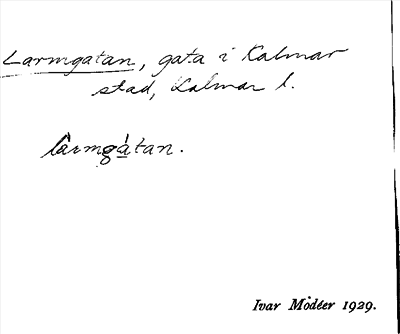 Larmgatan, gata i Kalmar
stad, Kalmar l.
làrmgàtan.
Ivar Modéer 1929.